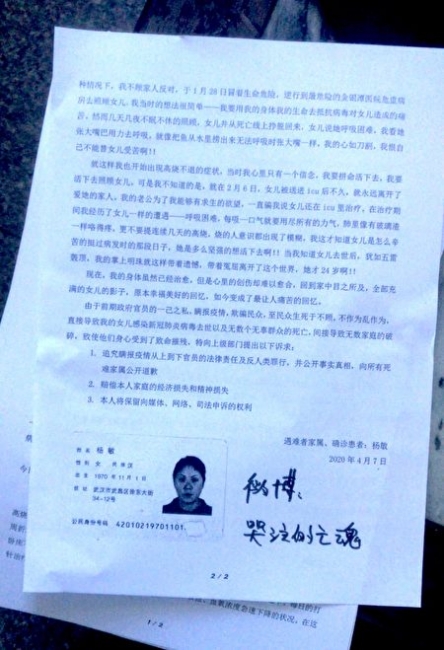 种情况下，我不顾家人反对，于1月28日冒着生命危险，逆行到最危险的金银潭医院危重病
房去照顾女儿。我当时的想法很简单——我要用我的身体我的生命去抵抗病毒对女儿造成的痛
苦，然而几天几夜不眠不休的照顾，女儿并从死亡线上挣脱回来，女儿说她呼吸困难，我看她
张大嘴巴用力去呼吸，就像把鱼从水里捞出来无法呼吸时张大嘴一样，我的心如刀割，我恨自
己不能替女儿受苦啊!!
就这样我也开始出现高烧不退的症状，当时我心里只有一个信念，我要拼命活下去，我要
活下去照顾女儿，可是我不知道的是，就在2月6日，女儿被送进icu后不久，就永远离开了
爱她的家人，我的老公为了我能够有求生的欲望，一直骗我说女儿还在icu里治疗，在治疗期
间我经历了女儿一样的遭遇——呼吸困难，每吸一口气就要用尽所有的力气，肺里像有玻璃渣
一样咯得疼，更不要提连续几天的高烧，烧的人意识都出现了模糊，我这才知道女儿是怎么辛
苦的挺过病发时的那段日子，她是多么坚强的想活下去啊!! 当我知道女儿去世后，犹如五雷
轰顶，我的掌上明珠就这样带着遗憾，带着冤屈离开了这个世界，她才24岁啊!!
现在，我的身体虽然已经治愈，但是心里的创伤却难以愈合，回到家中目之所及，全部充
满的女儿的影子，原本幸福美好的回忆，如今变成了最让人痛苦的回忆。
由于前期政府官员的一己之私，瞒报疫情，欺骗民众，至民众生死于不顾，不作为乱作为，
直接导致我的女儿感染新冠肺炎病毒去世以及无数个无辜群众的死亡，间接导致无数家庭的破
碎，致使他们身心受到了致命摧残，特向上级部门提出以下诉求：
1. 追究瞒报疫情从上到下官员的法律责任及反人类罪行，并公开事实真相，向所有死
难家属公开道歉
2. 赔偿本人家庭的经济损失和精神损失
3. 本人将保留向媒体、网络、司法申诉的权利
遇难者家属、确诊患者：杨敏
2020年4月7日
姓名 杨敏
性别 女 民族 汉
出生 1970年11月1日
住址 武汉市武昌区
34-12号
公民身份号码 42010219701101
微博：
哭泣的亡魂
2/2
1/2